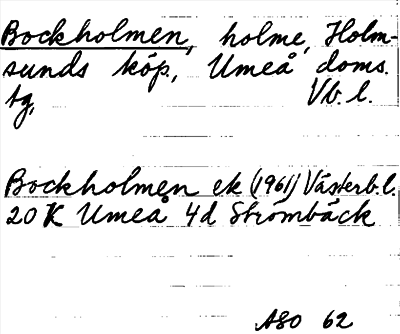 Bockholmen, holme, Holm-
sunds köp., Umeå doms.
tg, Vb. l.
Bockholmen ek (1961) Västerb. l.
20 K Umeå 4d Strömbäck
ASO 62